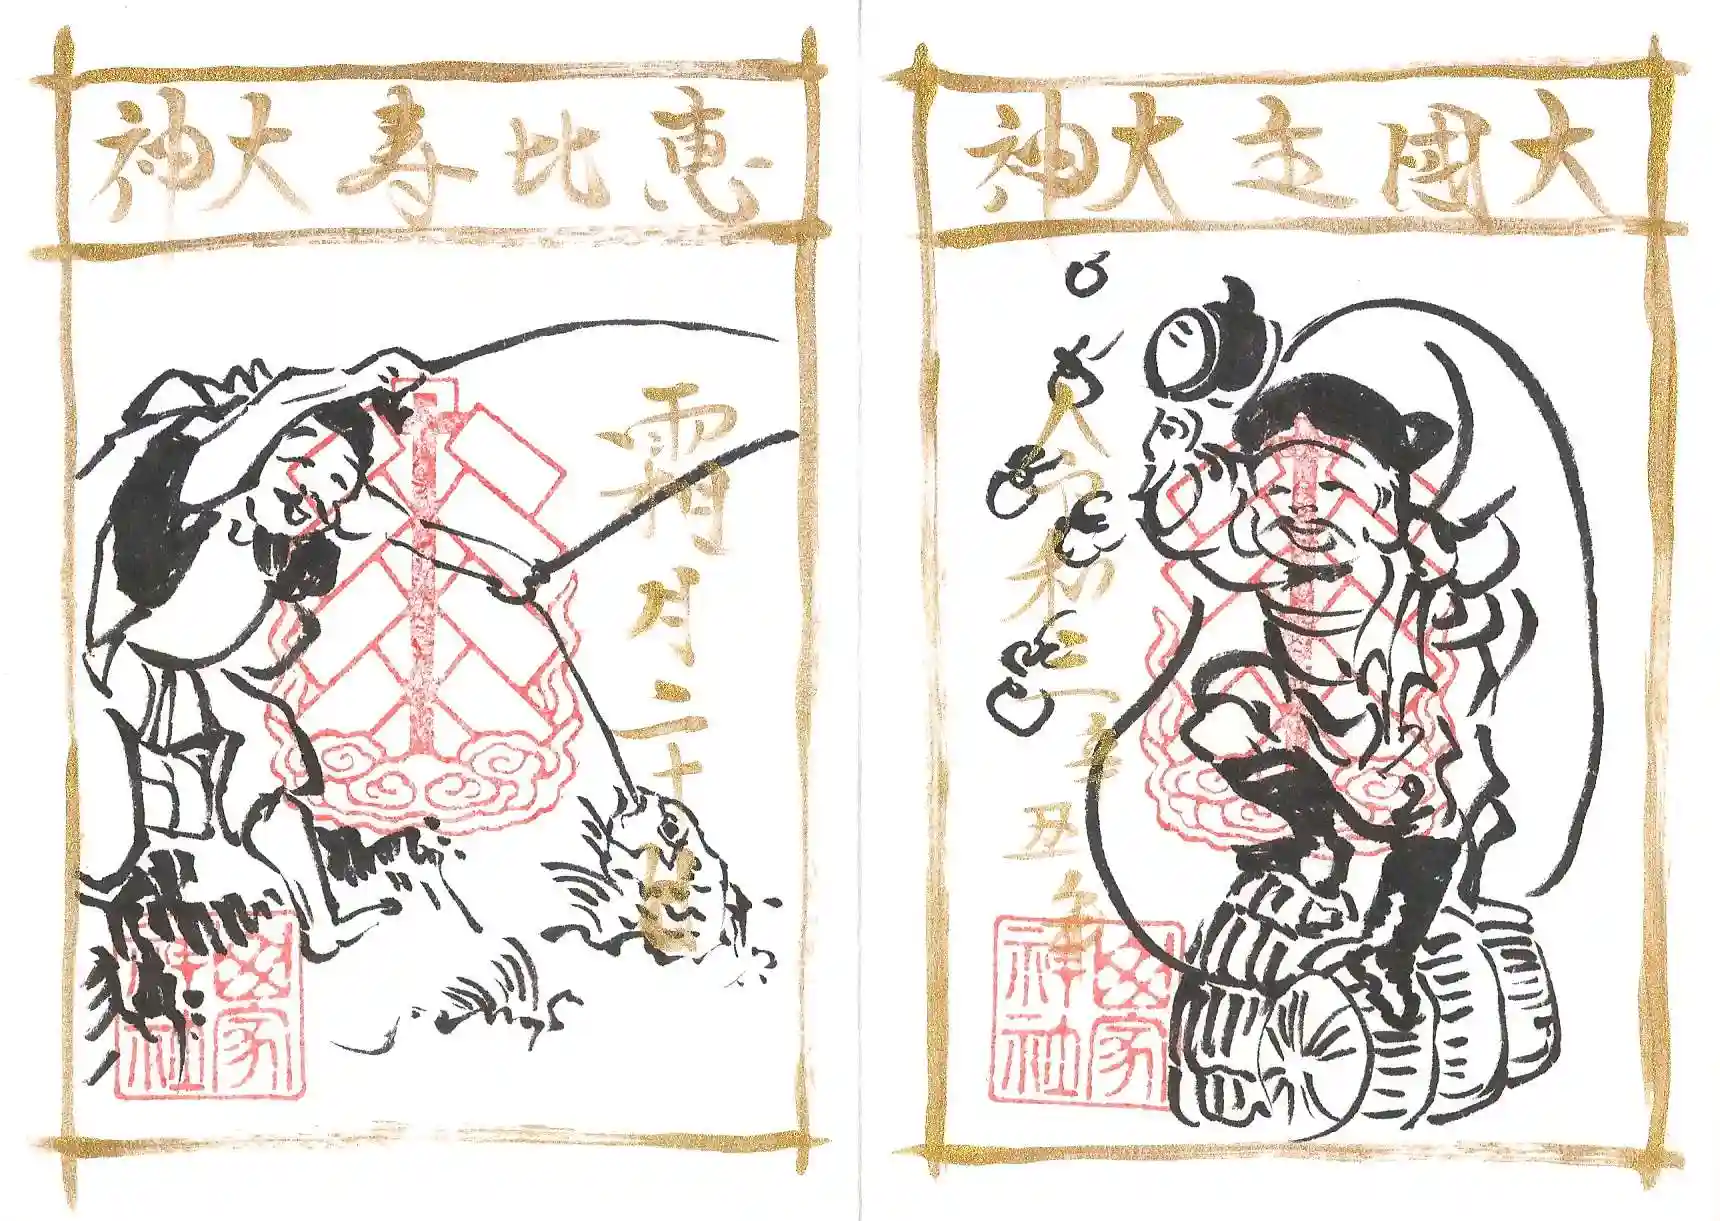 大國主大神
令和三辛丑年
家
神社
恵比寿大神
霜月二十
家
神社